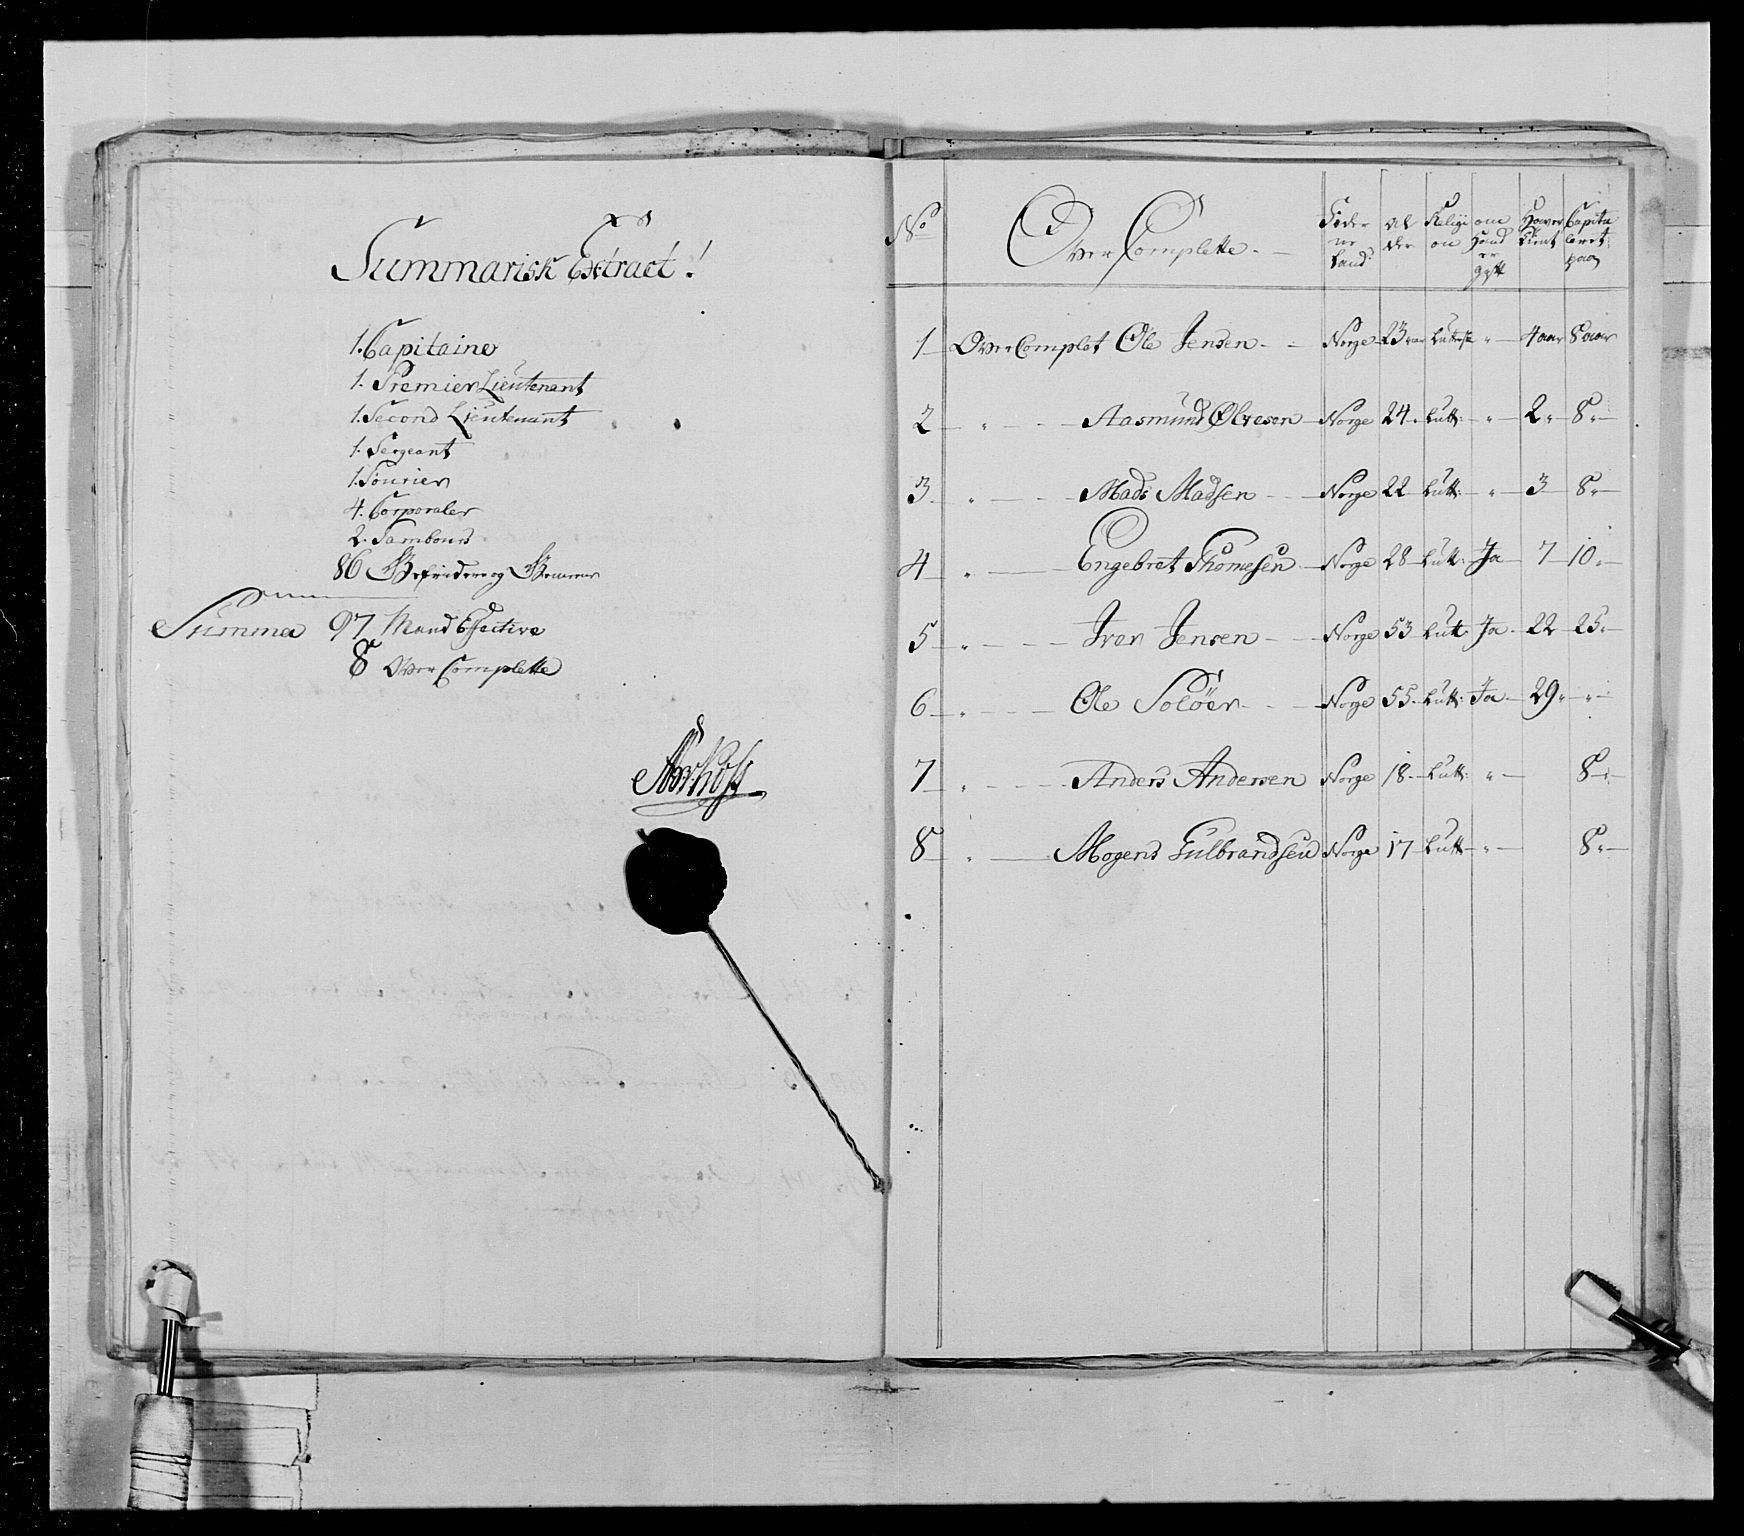 Summarisk Extract!
1. Capitaine
1. Premier Lieutenant
1. Second Lieutenant
1. Sergeant
1. Fourier
4. Corporaler
2. Tambours
86 Gefreidere og Gemeene
Summa 97 Mand Effective
8 Over Complette
No Over Complette. Føde ne Land Al der Religi on om Hand er gift Haver tient Capitu leret paa
1 Over Complet Ole Jensen Norge 23 aar Luttersk " 4 aar 8 aar
2 " Aasmund Olvesen Norge 24. Lutt: " 2 " 8 "
3 " Mads Madsen Norge 22 Lutt: " 3 8 "
4 " Engebret Thomesen Norge 28 Lutt: Ja 7 10 "
5 " Iver Jensen Norge 53 Lutt. Ja 22 25 "
6 " Ole Soløer Norge 55. Lutt: Ja 29 " "
7 " Anders Andersen Norge 18. Lutt: " 8 "
8 " Mogens Gulbrandsen Norge 17 Lutt " 8 "